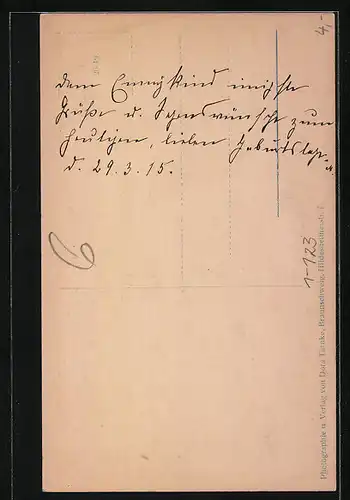 dem Emmykind innigste
Grüße u. Segenswünsche zum
heutigen, lieben Geburtstage
d. 29.3.15.
4,-
1-123
Photographie u. Verlag von Dora Tarnke, Braunschweig,